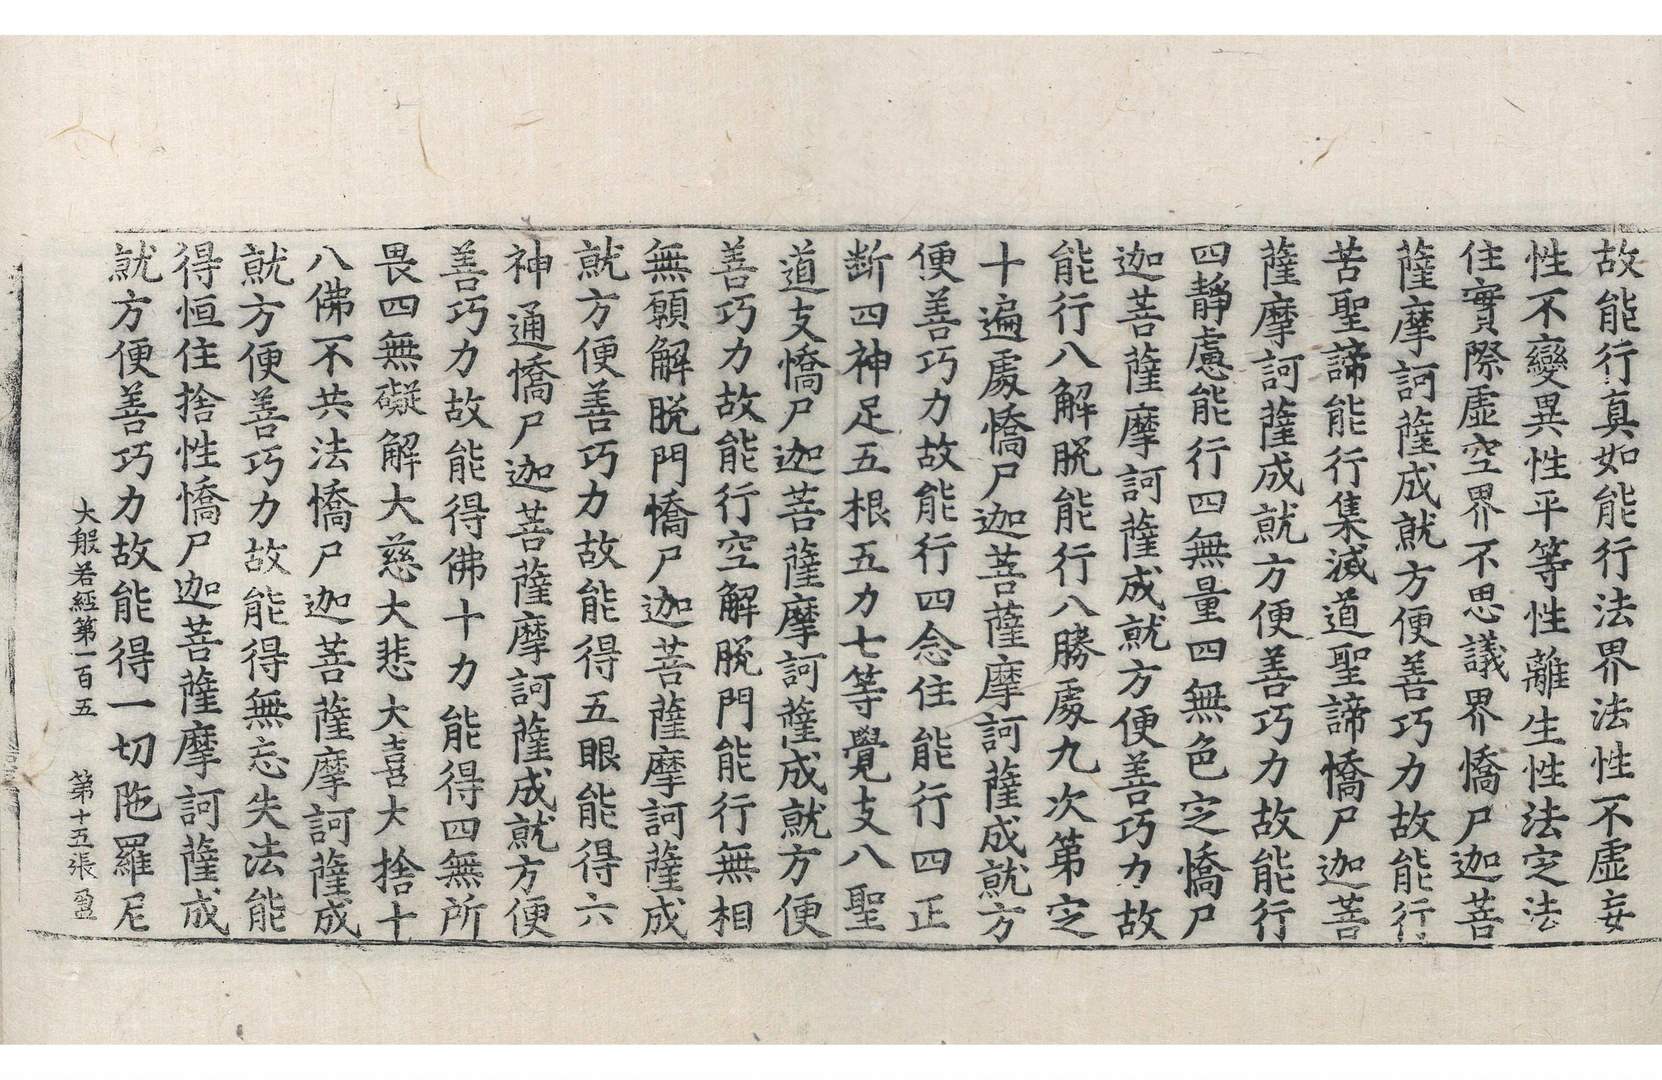 故能行真如能行法界法性不虛妄
性不變異性平等性離生性法定法
住實際虛空界不思議界憍尸迦菩
薩摩訶薩成就方便善巧力故能行
苦聖諦能行集滅道聖諦憍尸迦菩
薩摩訶薩成就方便善巧力故能行
四靜慮能行四無量四無色定憍尸
迦菩薩摩訶薩成就方便善巧力故
能行八解脫能行八勝處九次第定
十遍處憍尸迦菩薩摩訶薩成就方
便善巧力故能行四念住能行四正
斷四神足五根五力七等覺支八聖
道支憍尸迦菩薩摩訶薩成就方便
善巧力故能行空解脫門能行無相
無願解脫門憍尸迦菩薩摩訶薩成
就方便善巧力故能得五眼能得六
神通憍尸迦菩薩摩訶薩成就方便
善巧力故能得佛十力能得四無所
畏四無礙解大慈大悲大喜大捨十
八佛不共法憍尸迦菩薩摩訶薩成
就方便善巧力故能得無忘失法能
得恒住捨性憍尸迦菩薩摩訶薩成
就方便善巧力故能得一切陁羅尼
大般若經第一百五 第十五張 盈